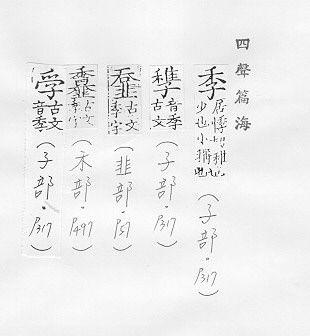 四聲篇海
季 居悸切稚也少也小稱也 (子部.P317)
稚 音季古文 (子部.P317)
古文季字 (韭部.P57)
古文季字 (木部.P497)
古文音季 (子部.P317)